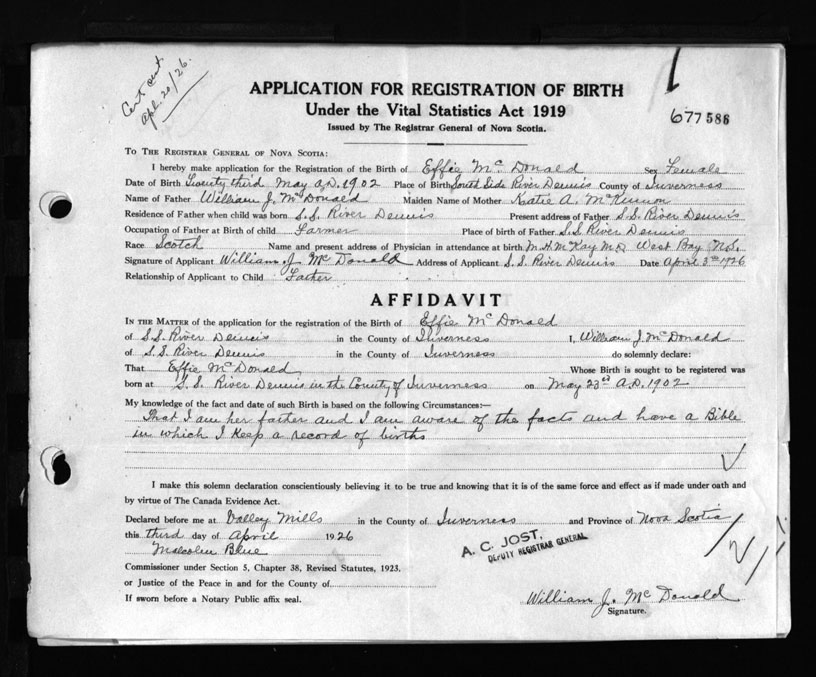 Cert. sent.
Apl. 20/26.
APPLICATION FOR REGISTRATION OF BIRTH
Under the Vital Statistics Act 1919
Issued by The Registrar General of Nova Scotia.
677586
TO THE REGISTRAR GENERAL OF NOVA SCOTIA:
I hereby make application for the Registration of the Birth of Effie Mc Donald Sex Female
Date of Birth Twenty third May A.D. 1902 Place of Birth South Side River Dennis County of Inverness
Name of Father William J. McDonald Maiden Name of Mother Katie A. McKinnon
Residence of Father when child was born S. S. River Dennis Present address of Father S. S. River Dennis
Occupation of Father at Birth of child Farmer Place of birth of Father S. S. River Dennis
Race Scotch Name and present address of Physician in attendance at birth M. H. McKay M.D. West Bay N.S.
Signature of Applicant William J. Mc Donald Address of Applicant S. S. River Dennis Date April 3rd 1926
Relationship of Applicant to Child Father
AFFIDAVIT
IN THE MATTER of the application for the registration of the Birth of Effie McDonald
of S. S. River Dennis in the County of Inverness I, William J. McDonald
of S. S. River Dennis in the County of Inverness do solemnly declare:
That Effie McDonald Whose Birth is sought to be registered was
born at S. S. River Dennis in the County of Inverness on May 23rd A.D. 1902
My knowledge of the fact and date of such Birth is based on the following Circumstances:—
That I am her father and I am aware of the facts and have a Bible
in which I keep a record of births
I make this solemn declaration conscientiously believing it to be true and knowing that it is of the same force and effect as if made under oath and
by virtue of The Canada Evidence Act.
Declared before me at Valley Mills in the County of Inverness and Province of Nova Scotia
this third day of April 1926
Malcolm Blue
A. C. JOST,
DEPUTY REGISTRAR GENERAL
Commissioner under Section 5, Chapter 38, Revised Statutes, 1923.
or Justice of the Peace in and for the County of
If sworn before a Notary Public affix seal.
William J. Mc Donald
Signature.